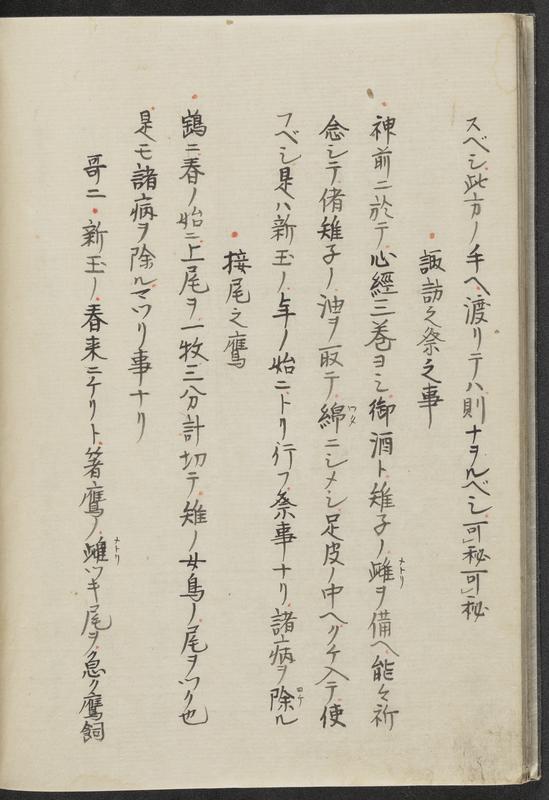 スベシ此方ノ手ヘ渡リテハ則ナヲルベシ可秘可秘
諏訪之祭之事
神前ニ於テ心經三巻ヨミ御酒ト雉子ノ雌ヲ備ヘ能々祈
念シテ偖雉子ノ油ヲ取テ綿ニシメシ足皮ノ中ヘクケ入テ使
フベシ是ハ新玉ノ年ノ始ニトリ行フ祭事ナリ諸病ヲ除ル
接尾之鷹
鵄ニ春ノ始ニ上尾ヲ一牧三分計切テ雉ノ女鳥ノ尾ヲツク也
是モ諸病ヲ除ルマツリ事ナリ
哥ニ新玉ノ春来ニケリト箸鷹ノ雌ツキ尾ヲ急ク鷹飼